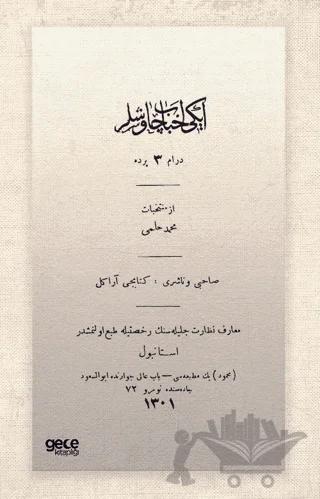 ایکی احباب چاوشلر
درام ٣ پرده
از منتخبات
محمد حلمی
صاحبی وناشری : کتابجی آراکل
معارف نظارت جلیله‌سنك رخصتیله طبع اولنمشدر
استانبول
(محمود) بك مطبعه‌سی — باب عالی جوارنده ابوالسعود
جاده‌سنده نومرو ٧٢
١٣٠١
gece
kitaplığı